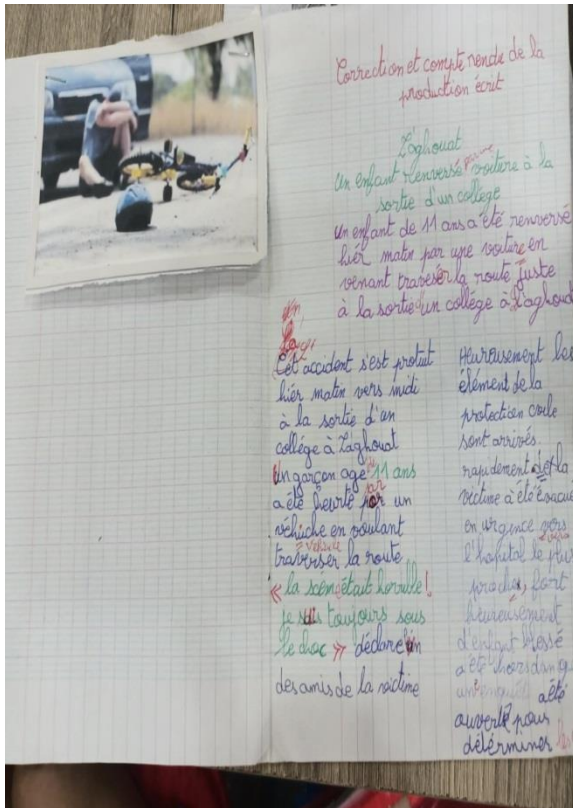 Correction et compte rendu de la
production écrit
Laghouat
Un enfant renversé par une voiture à la
sortie d'un collège
un enfant de 11 ans a été renversé
hiér matin par une voiture en
venant traverser la route juste
à la sortie d'un collège à Laghouat
Cet accident s'est protuit
hiér matin vers midi
à la sortie d'un
collége à Laghouat
Un garçon age 11 ans
a été heurté par un
véhicule en voulant
traverser la route
« la scene était horrible !
je suis toujours sous
le choc » déclare un
des amis de la victime
Heureusement les
élément de la
protection civile
sont arrivés
rapidement la
victime a été évacué
en urgence vers
l'hopital le plus
proche, fort
heureusement
d'enfant blessé
a été hors dange
a été
ouverte pour
détérminer les